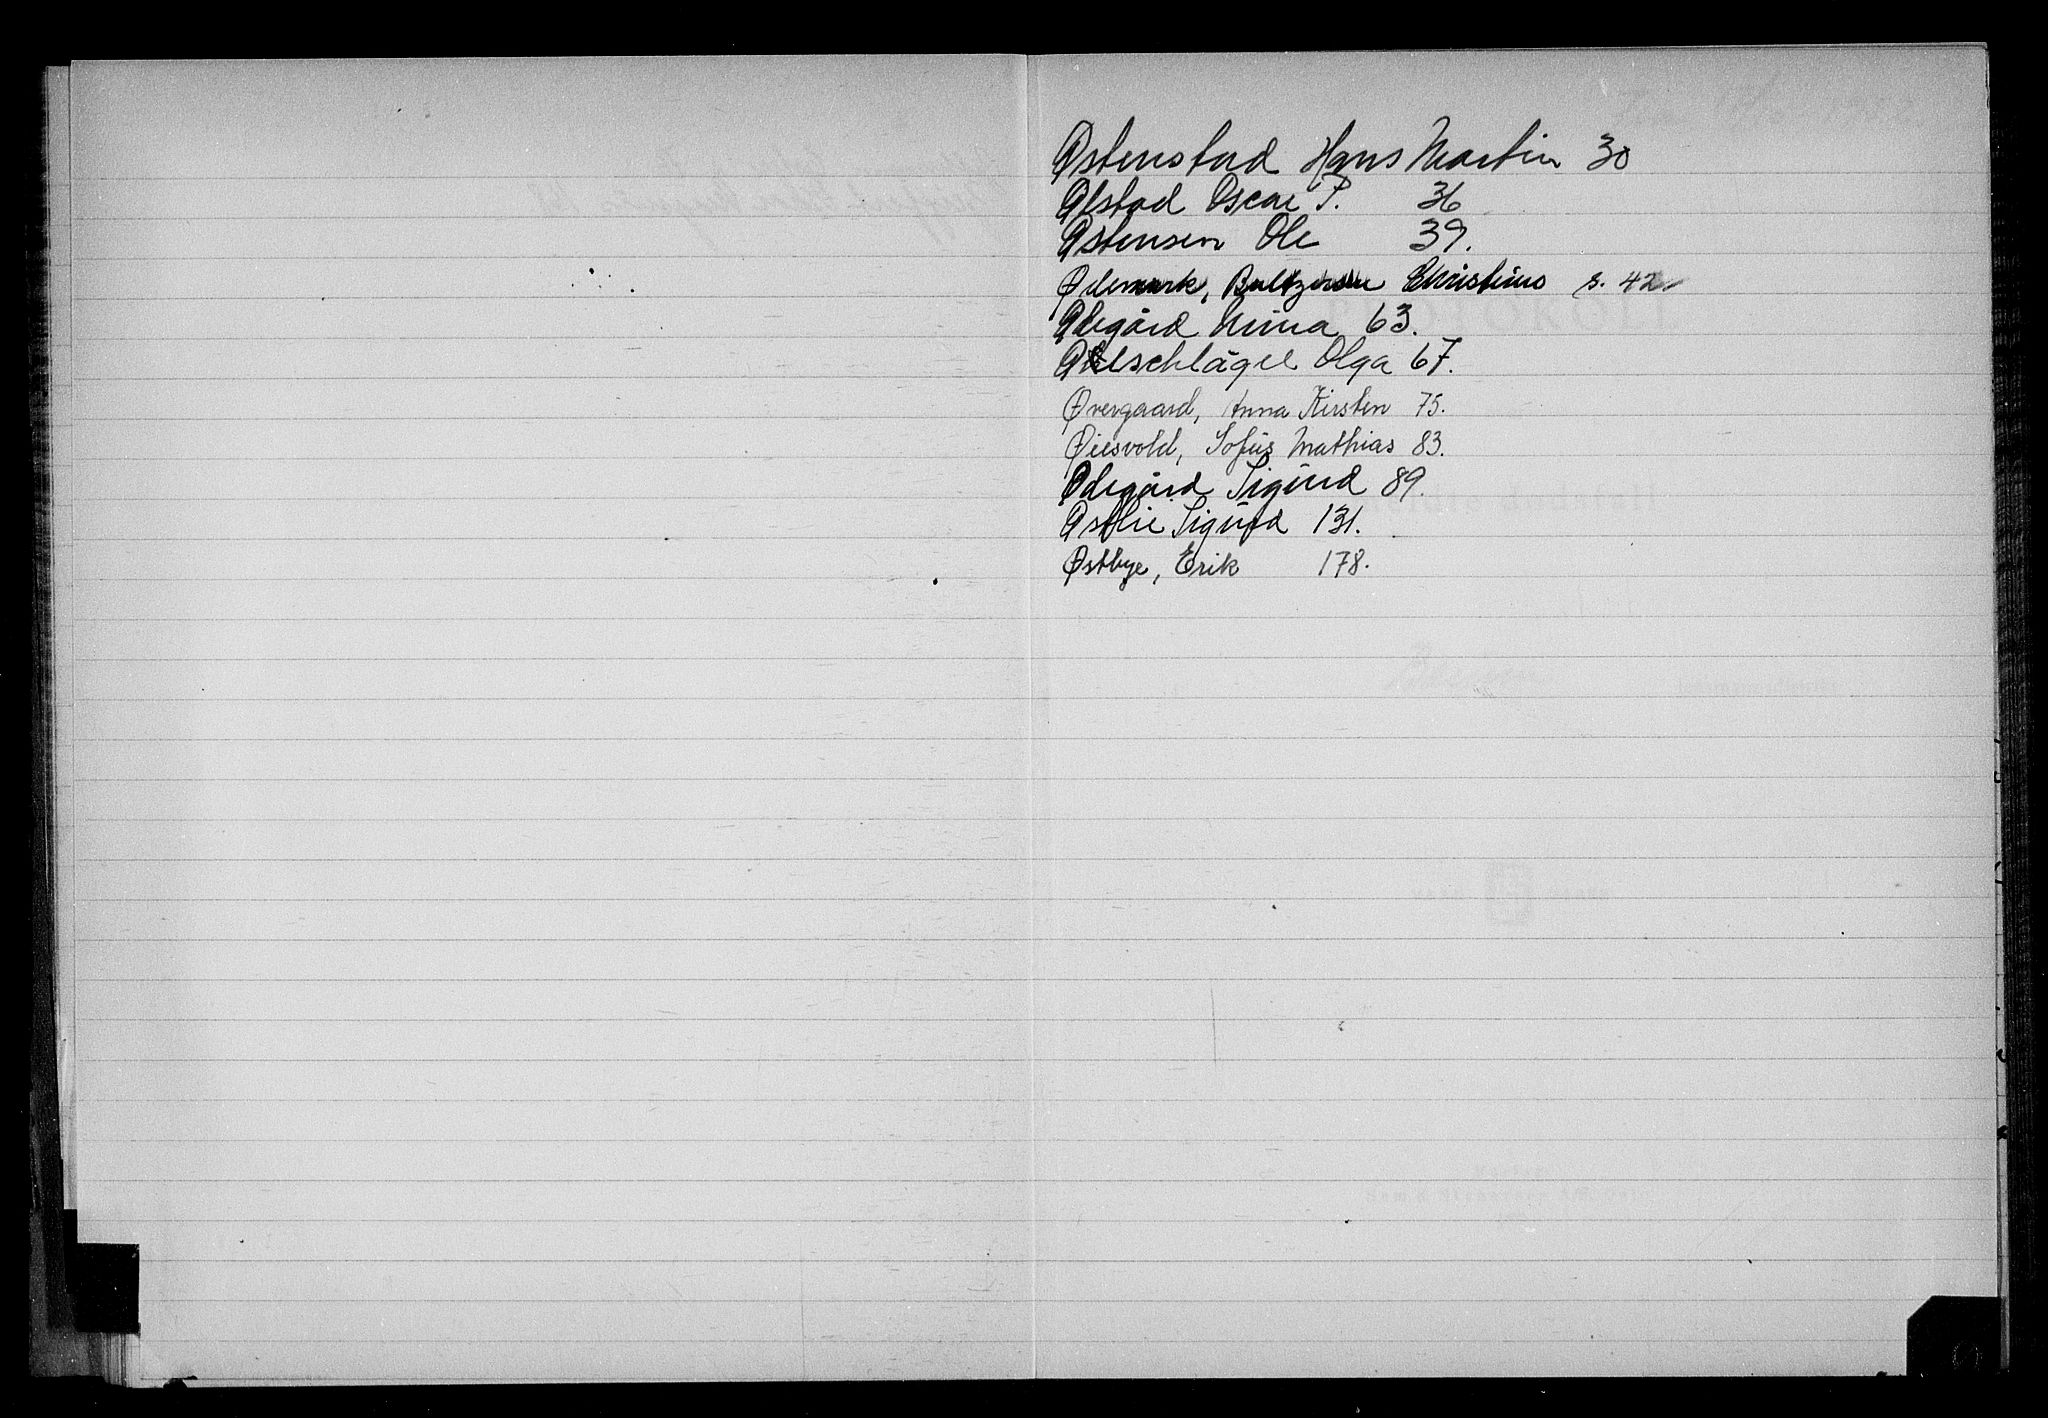 Østenstad Hans Martin 30
Ølstad Oscar P. 36
Østensen Ole 39.
Ødemark, Baltzersen Christinus s. 42
Ødegård Anna 63.
Øhlschläger Olga 67.
Øvergaard, Anna Kirsten 75.
Øiesvold, Sofus Mathias 83.
Ødegård Sigurd 89.
Østlie Sigurd 131.
Østbye, Erik 178.